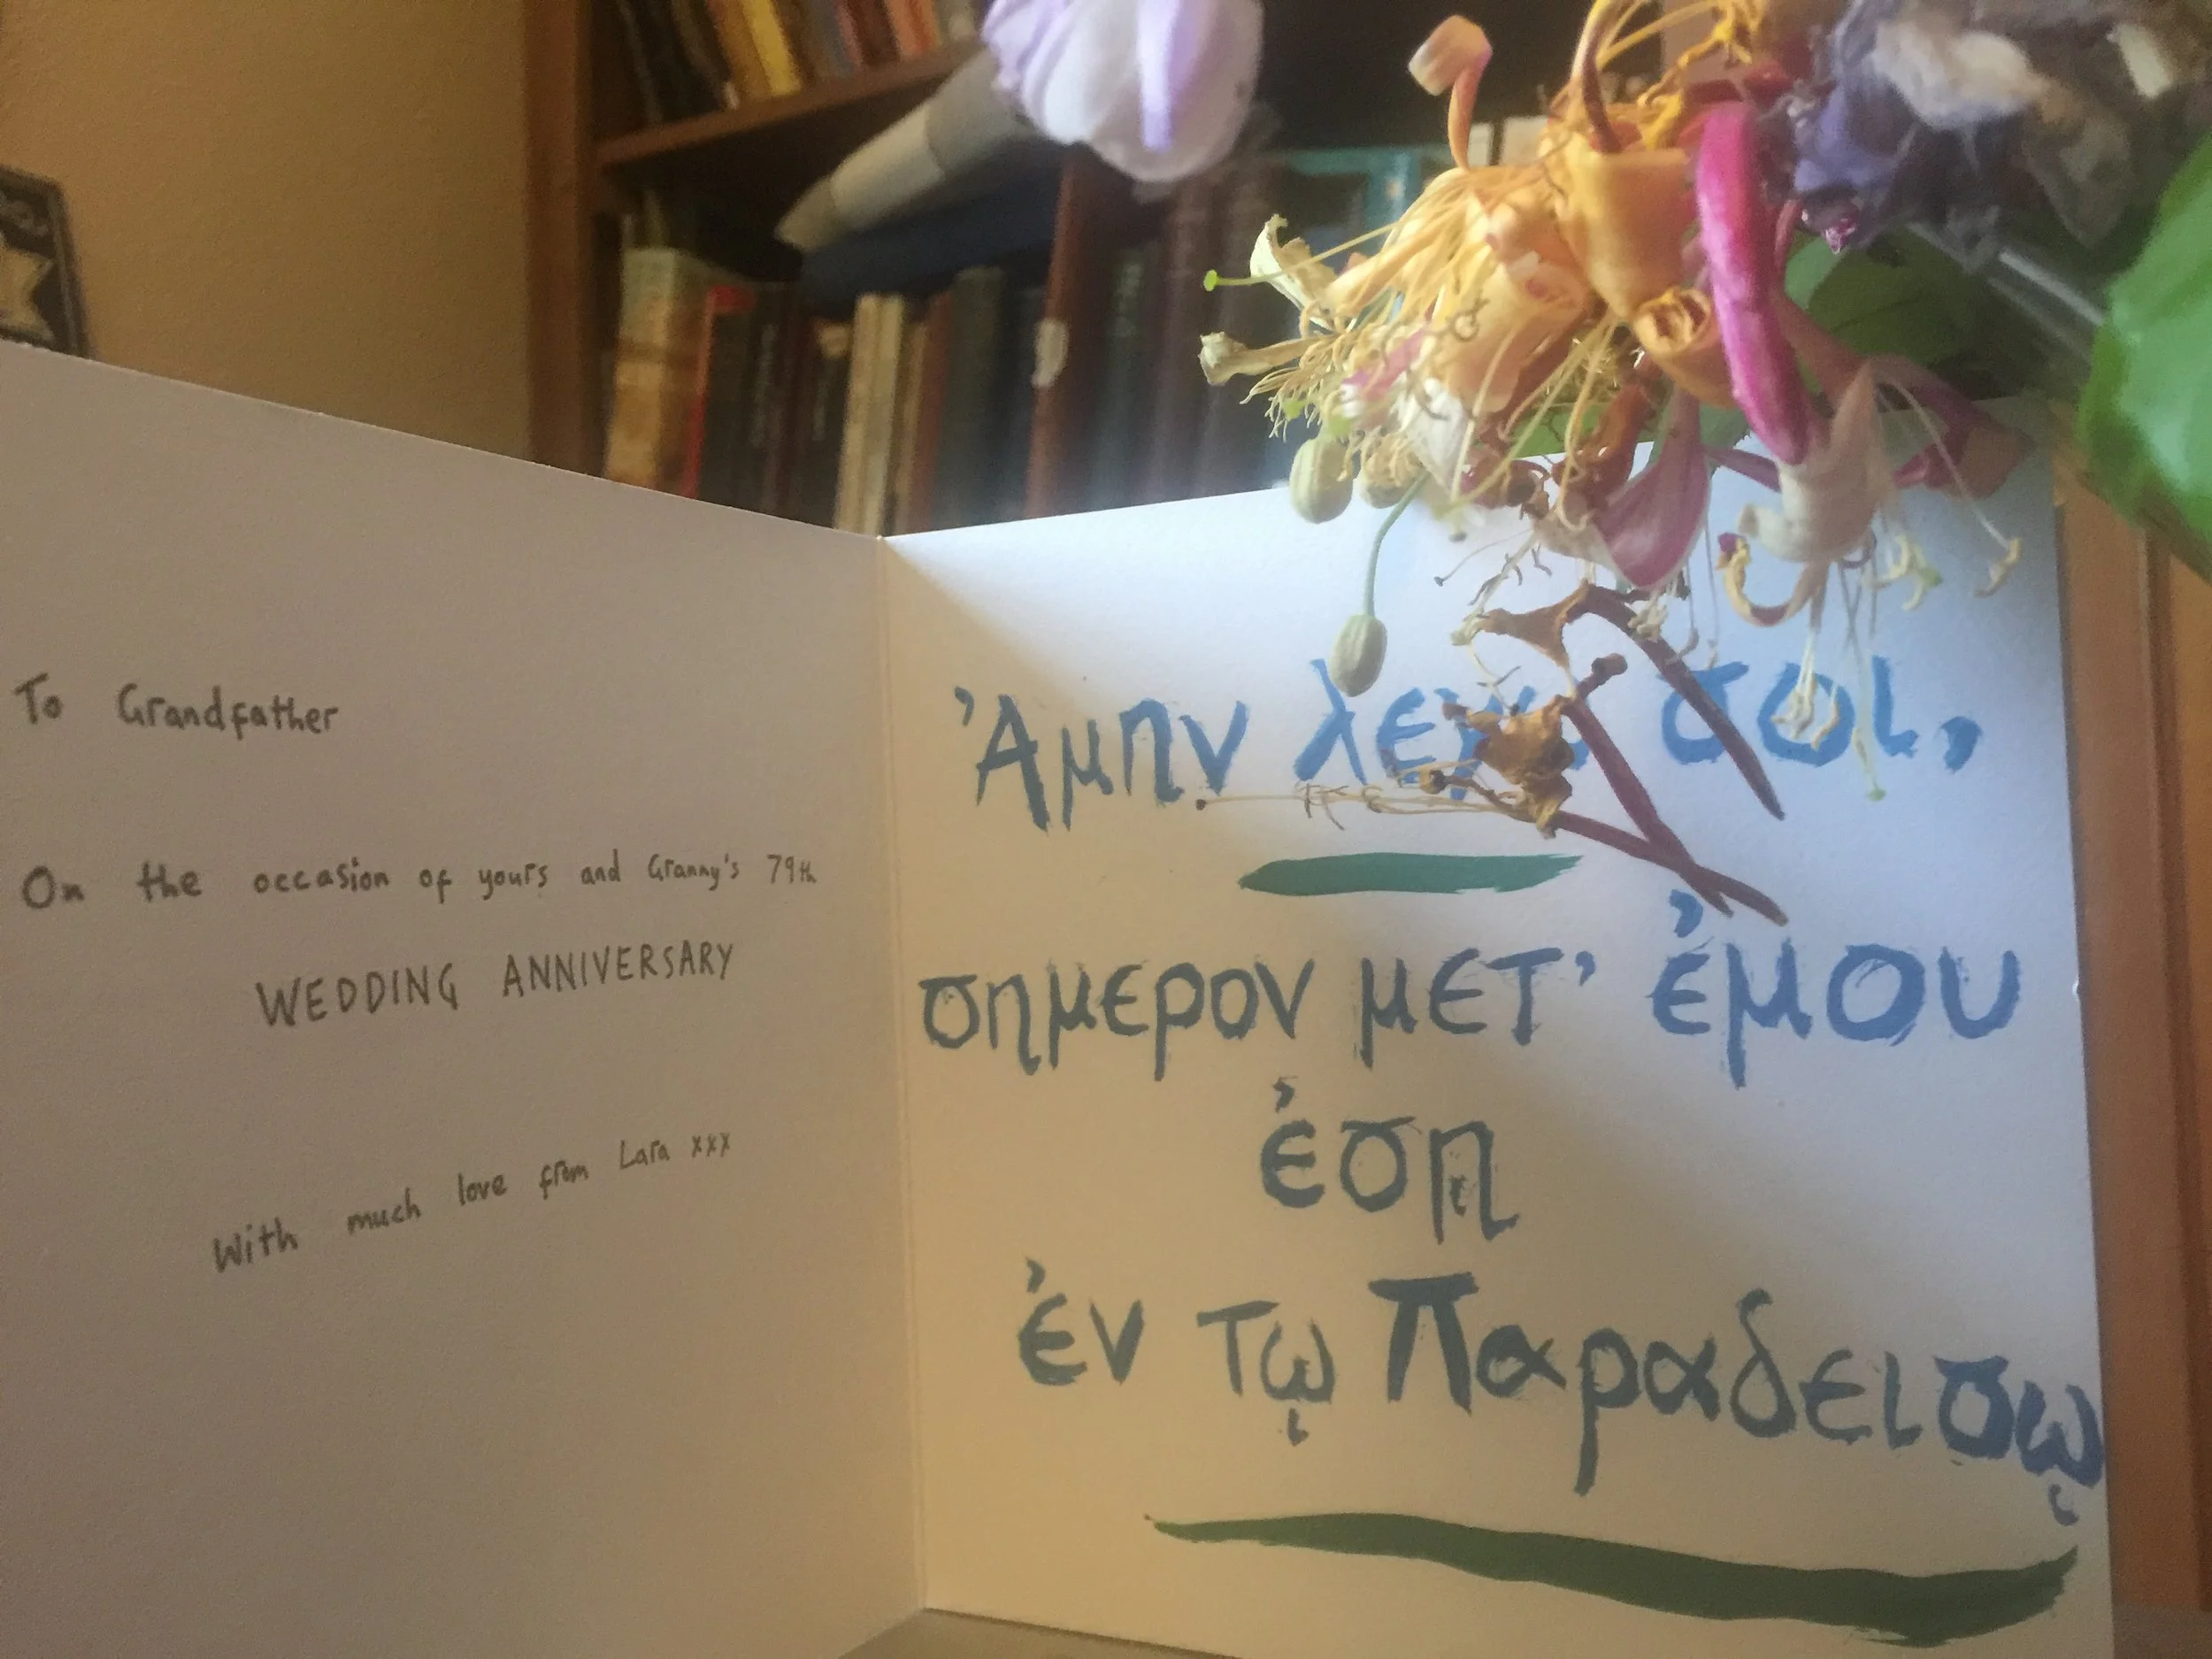 To Grandfather
On the occasion of yours and Granny's 79th
WEDDING ANNIVERSARY
With much love from Lara xxx
Ἀμην λεγω σοι,
σημερον μετ' ἐμου
ἐσῃ
ἐν τῳ Παραδεισῳ